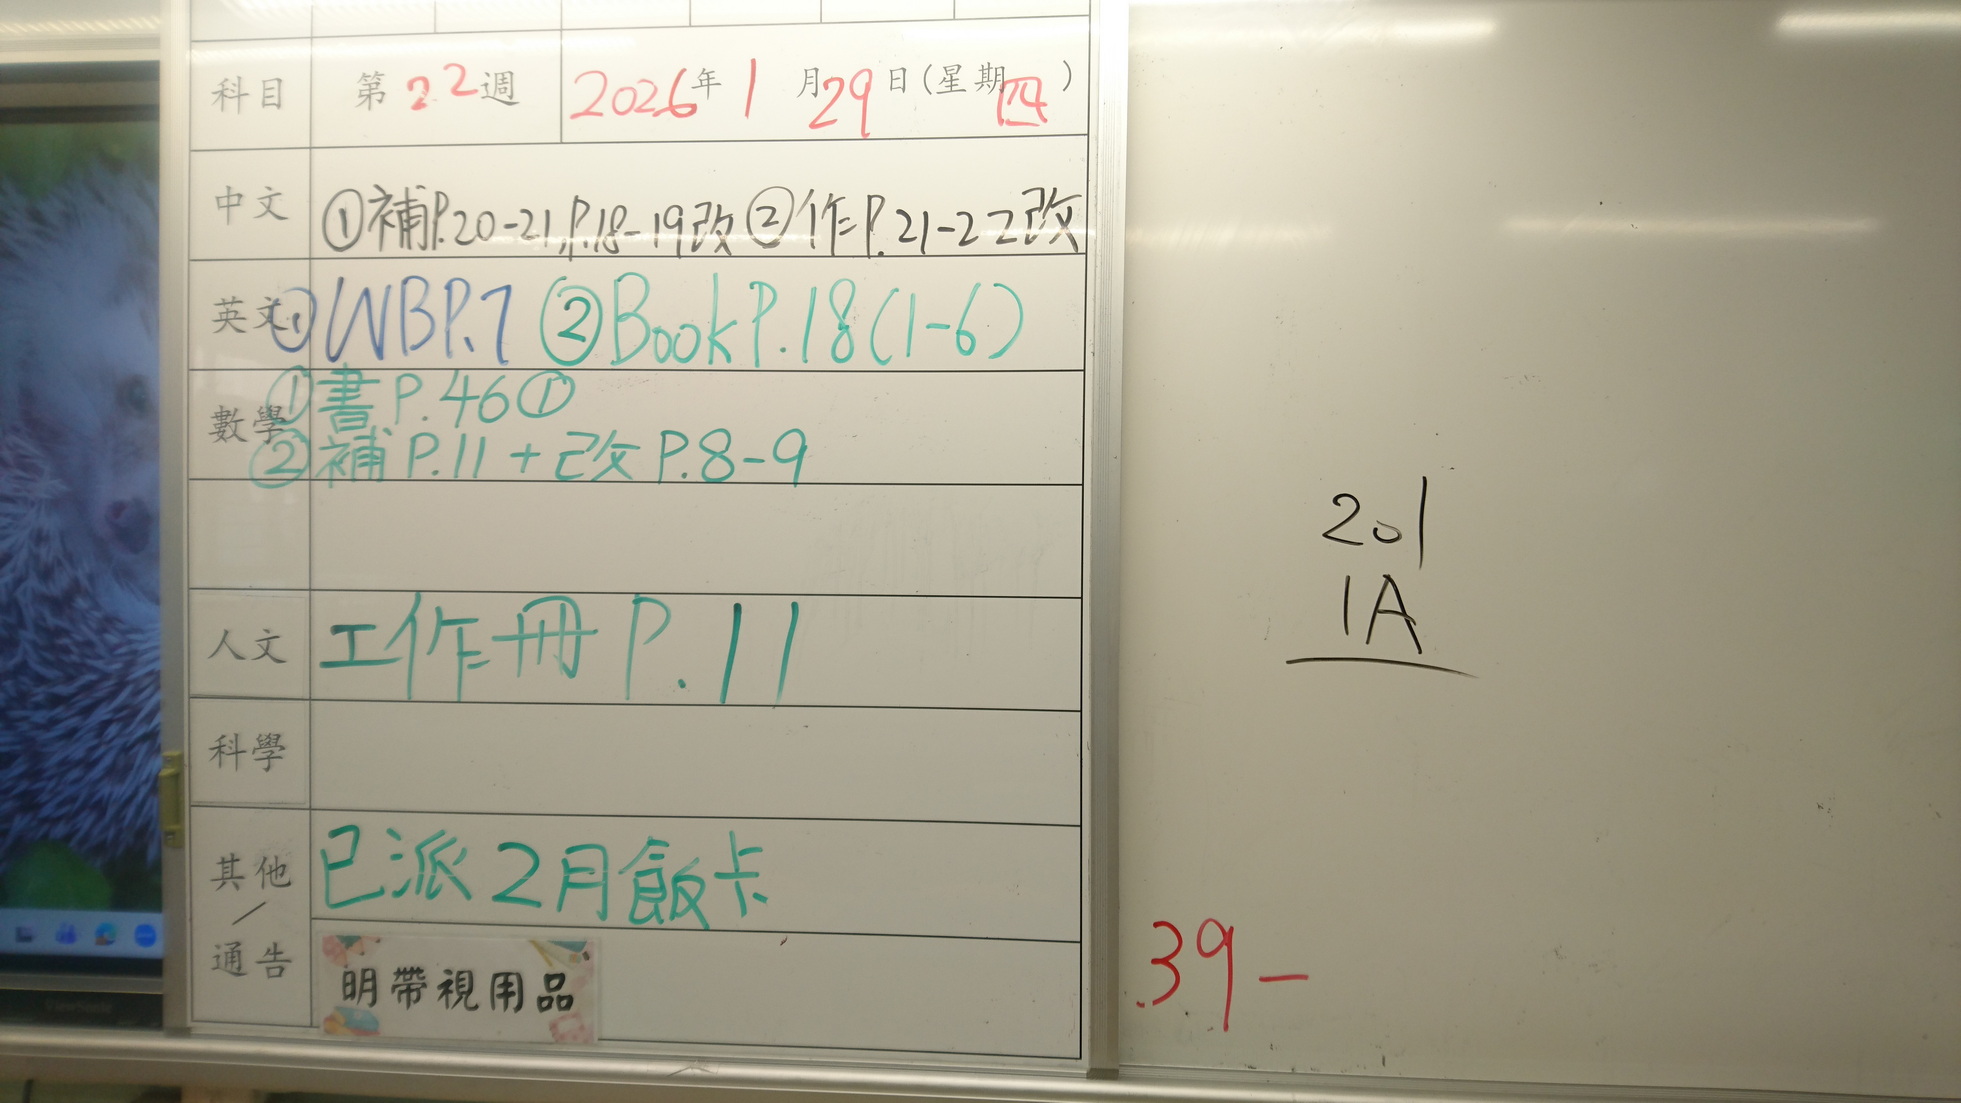 科目 第22週 2026年1月29日(星期四)
中文 ①補P.20-21,P.18-19改②作P.21-22改
英文 ①WBP.7 ②BookP.18(1-6)
數學 ①書P.46①
②補P.11+改P.8-9
人文 工作冊P.11
科學
其他/通告 已派2月飯卡
明帶視用品
201
1A
39-
ViewSonic